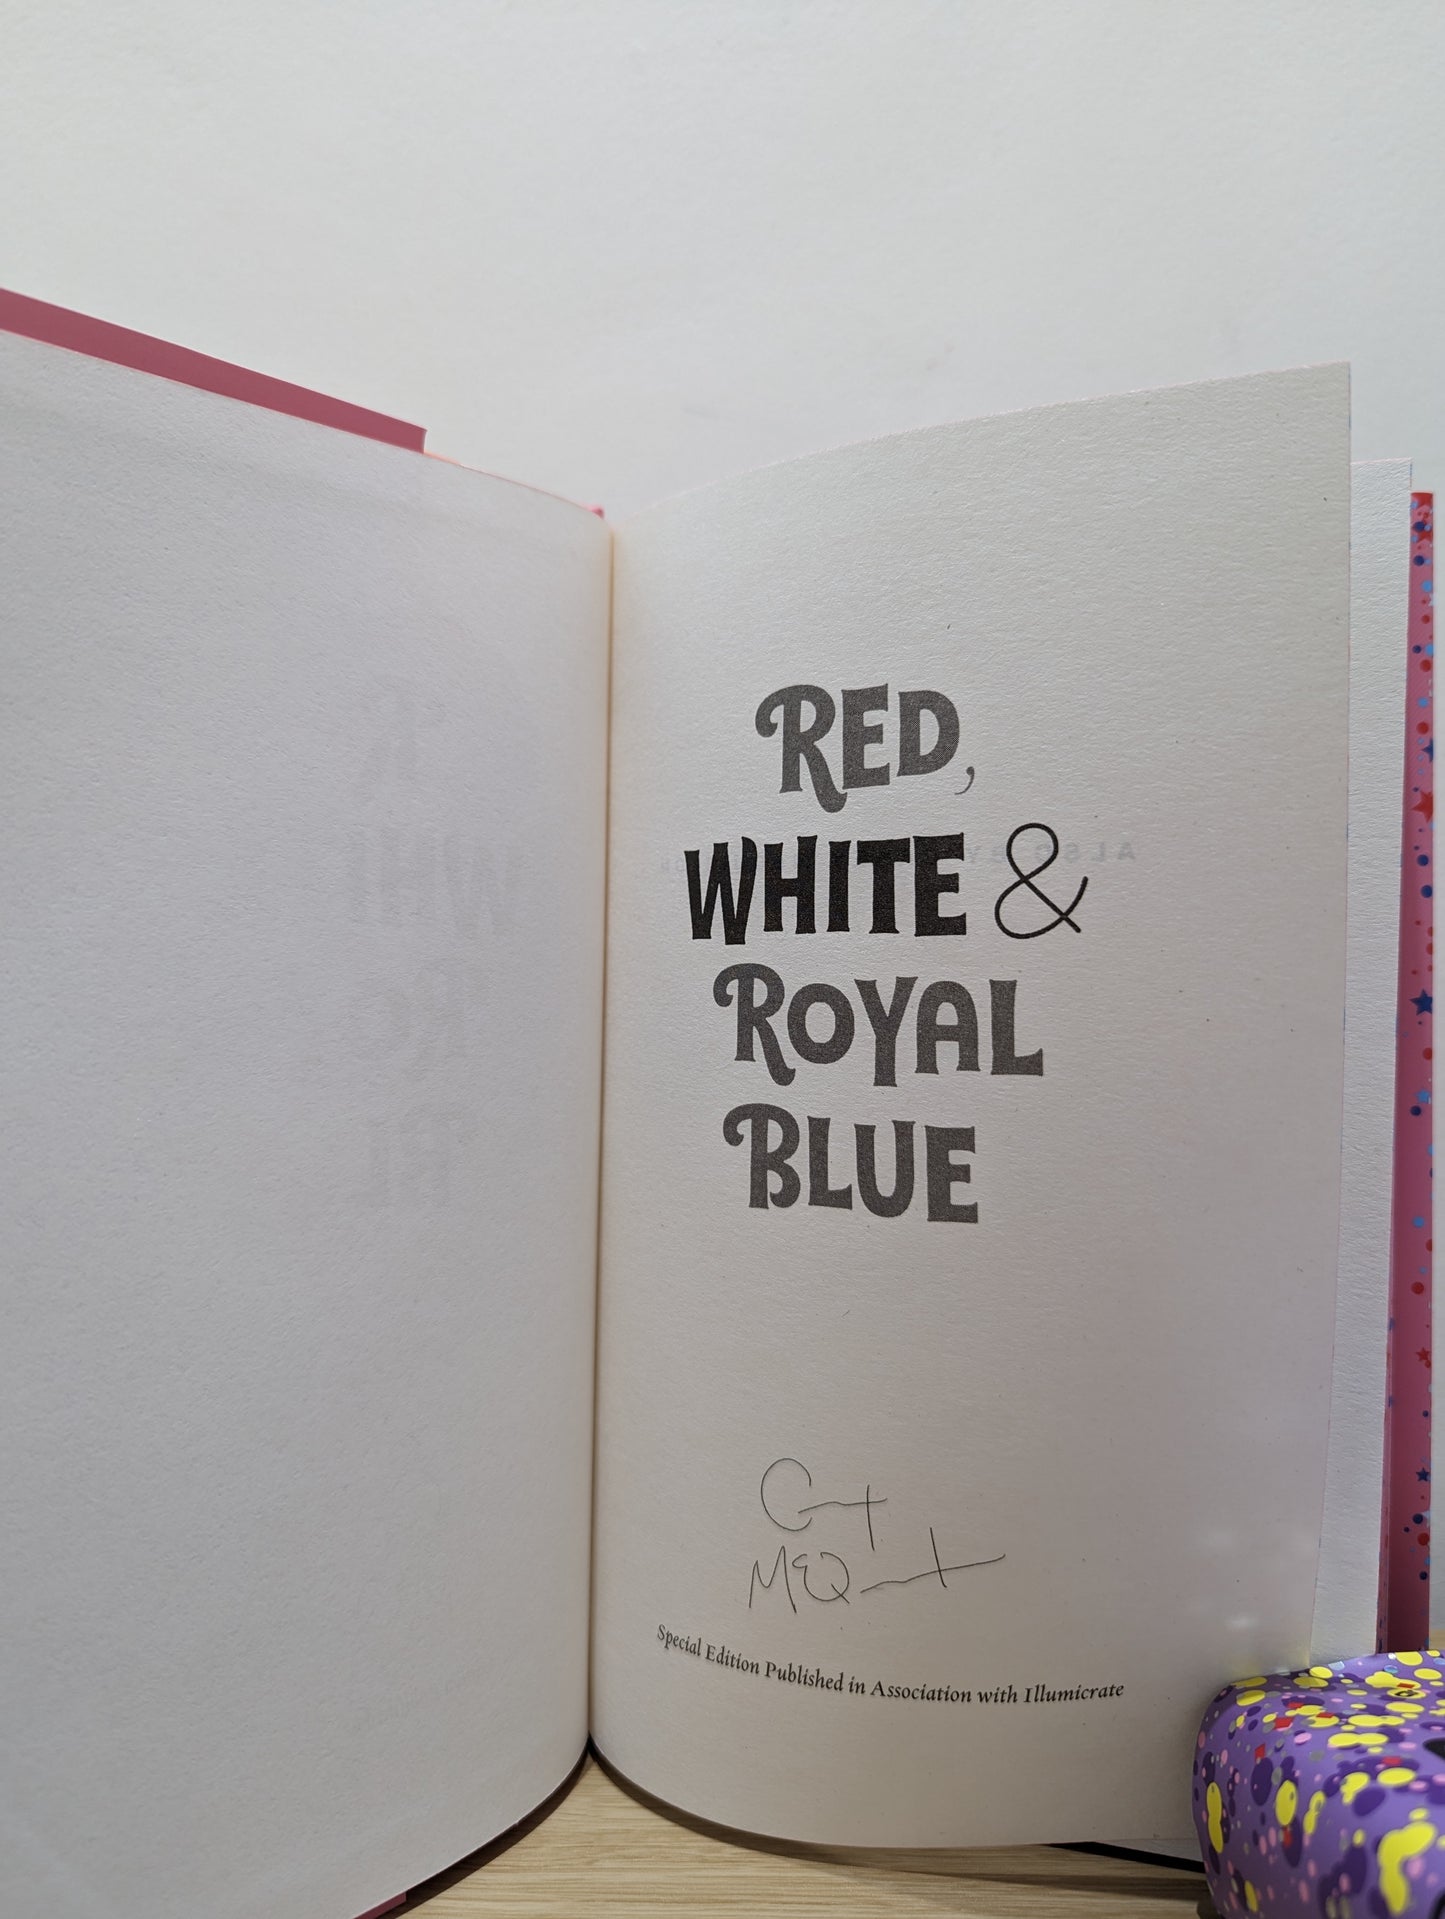 RED,
WHITE &
ROYAL
BLUE
Special Edition Published in Association with Illumicrate